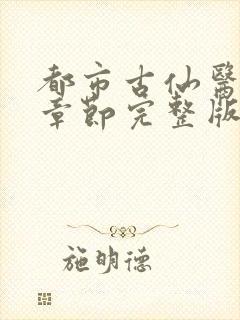 都市古仙醫
章節完整版
施明德